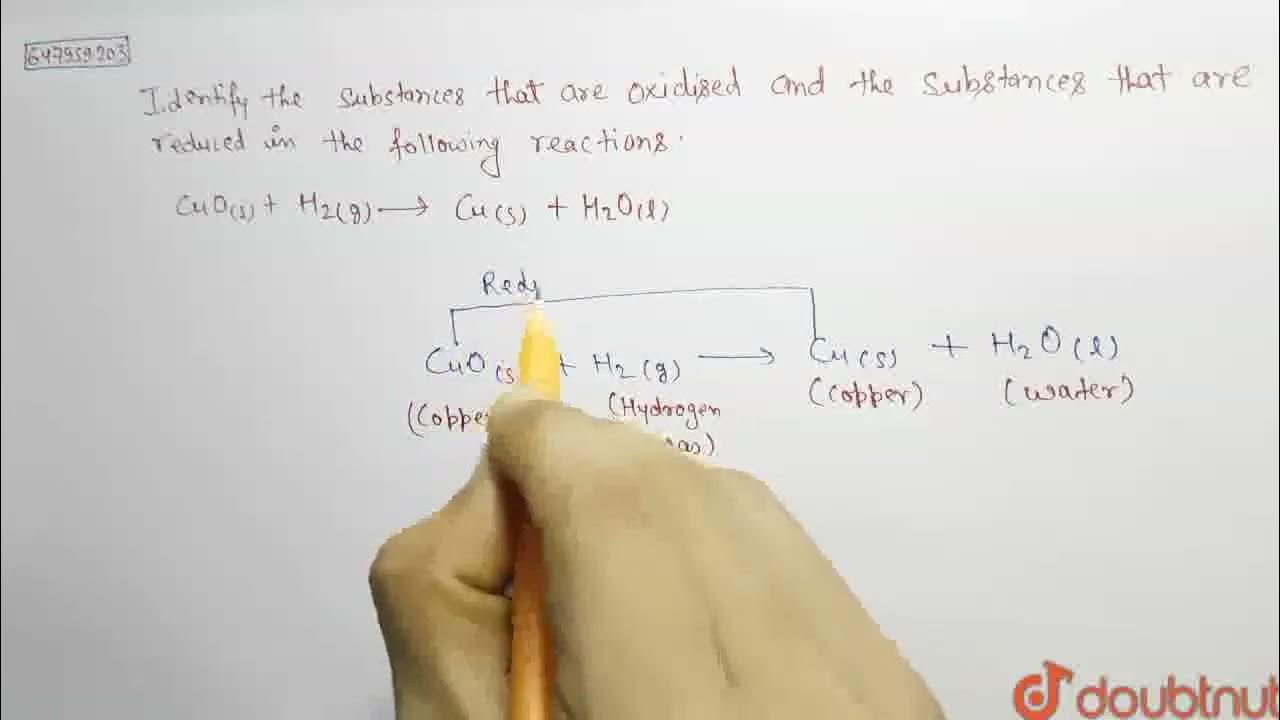 647959203
Identify the substances that are oxidised and the substances that are
reduced in the following reactions.
CuO(s) + H2(g) ⟶ Cu(s) + H2O(l)
Redu
CuO(s + H2(g) ⟶ Cu(s) + H2O(l)
(Coppe (Hydrogen (Copper) (water)
as)
doubtnut